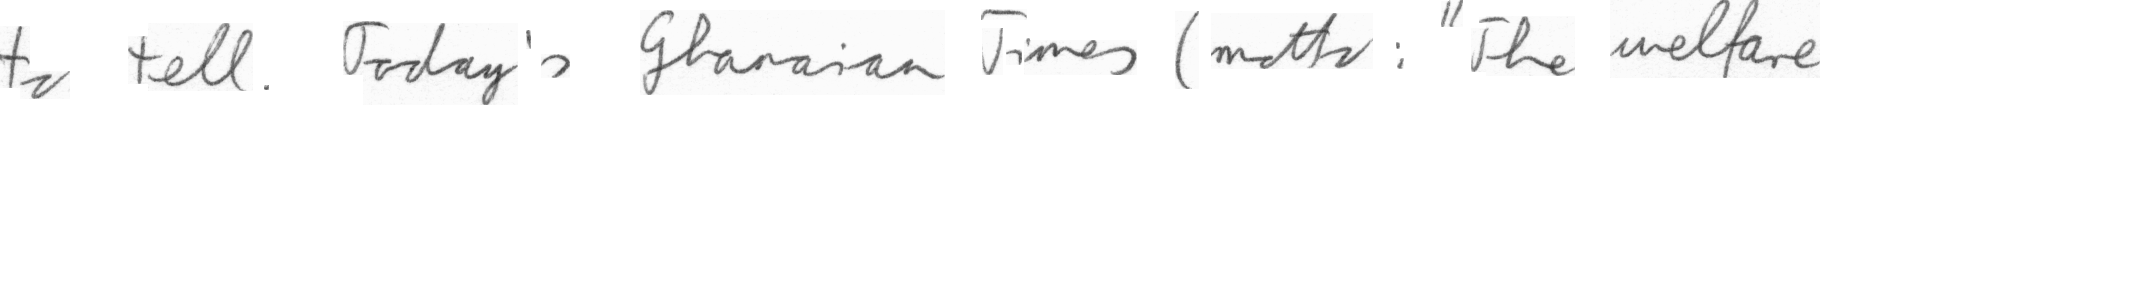 to tell. Today's Ghanaian Times (motto: "The welfare